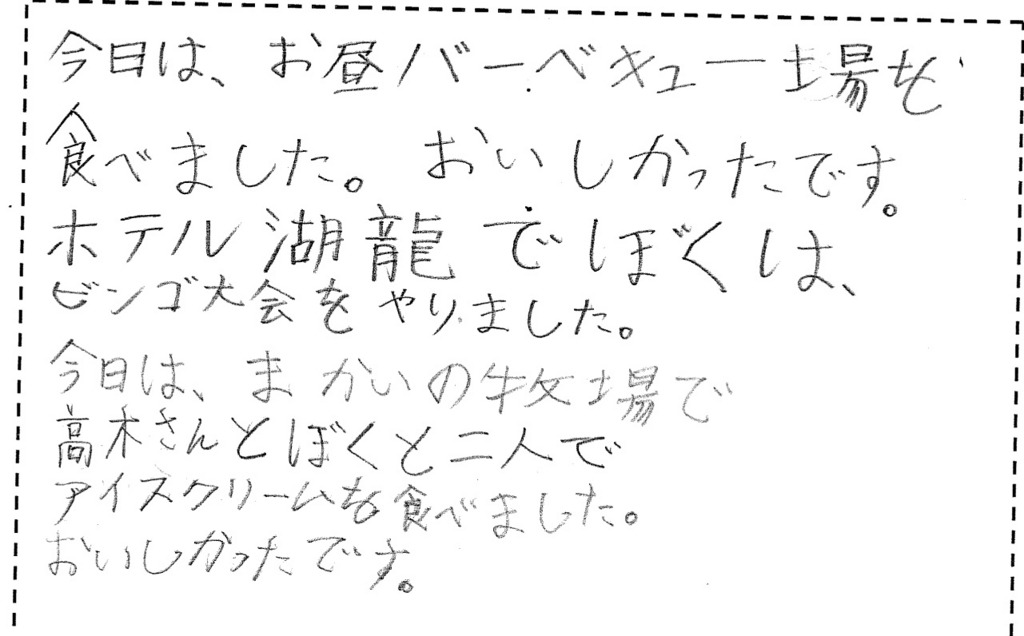 今日は、お昼バーベキュー場を
食べました。おいしかったです。
ホテル湖龍でぼくは、
ビンゴ大会をやりました。
今日は、まかいの牧場で
高木さんとぼくと二人で
アイスクリームを食べました。
おいしかったです。